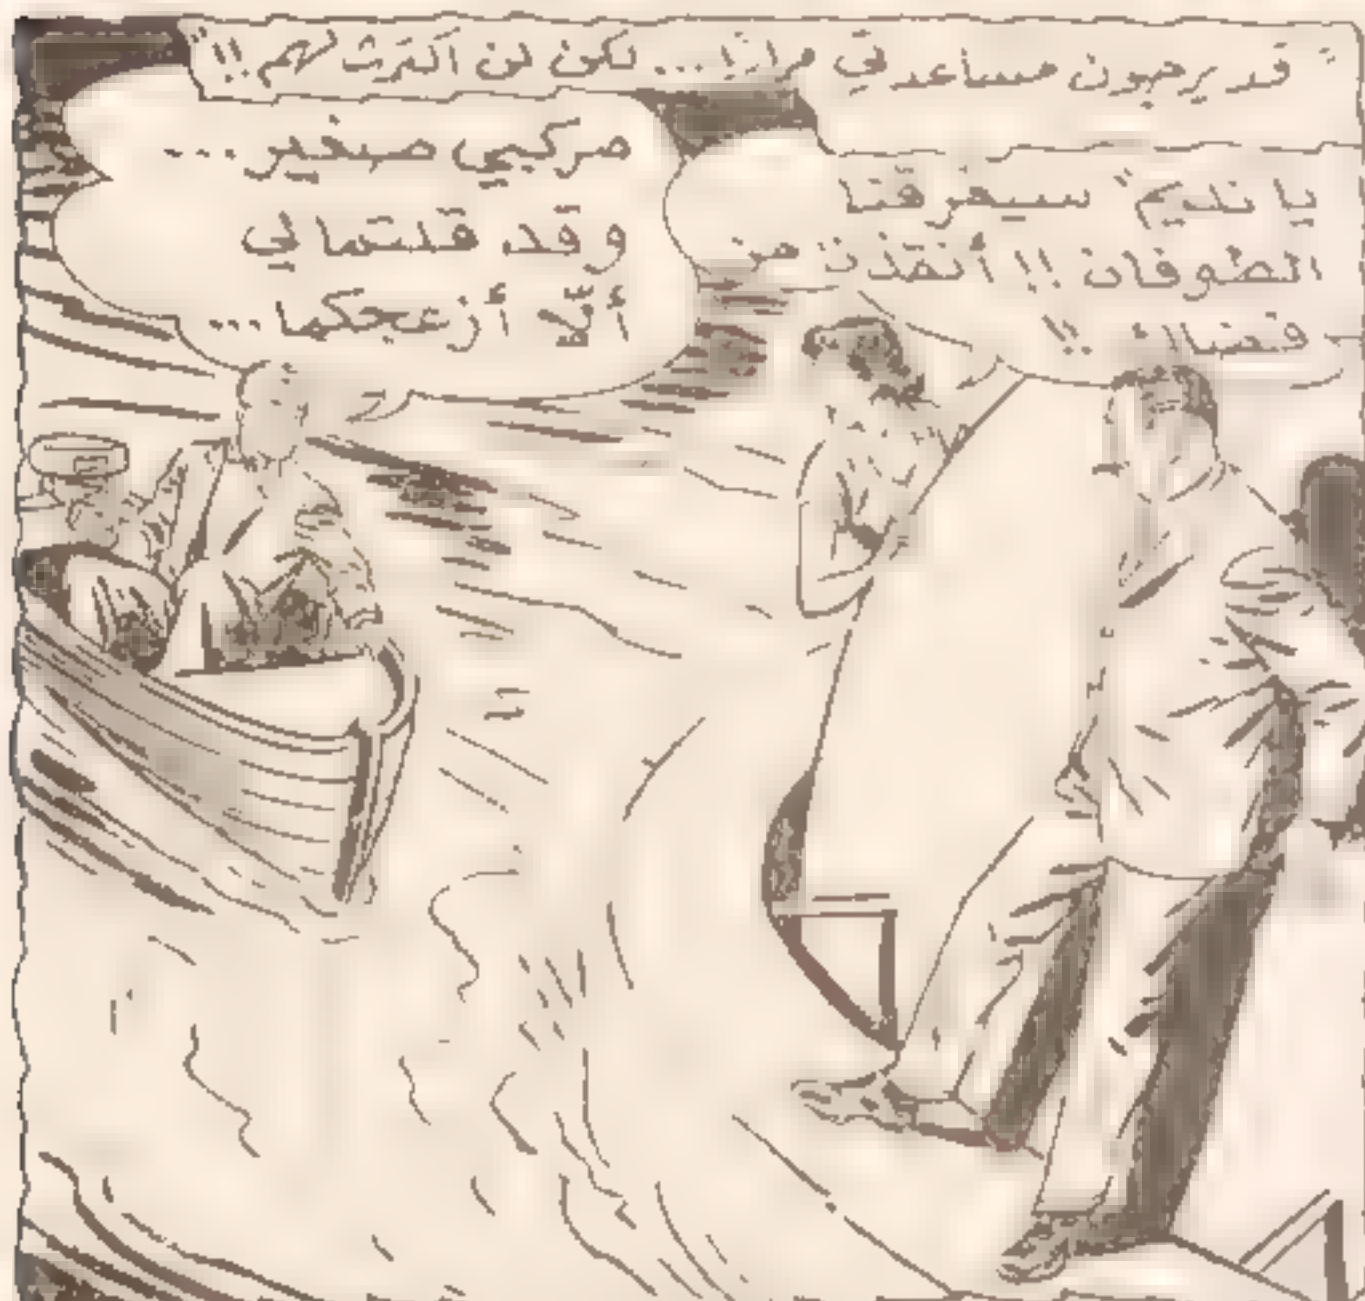 "قد يرجون مساعدتي مرارًا... لكن لن أكترث لهم!!"
يا نديم" سيغرقنا
الطوفان!! أنقذنا من
فضلك!!
مركبي صغير...
وقد قلتما لي
ألّا أزعجكما...